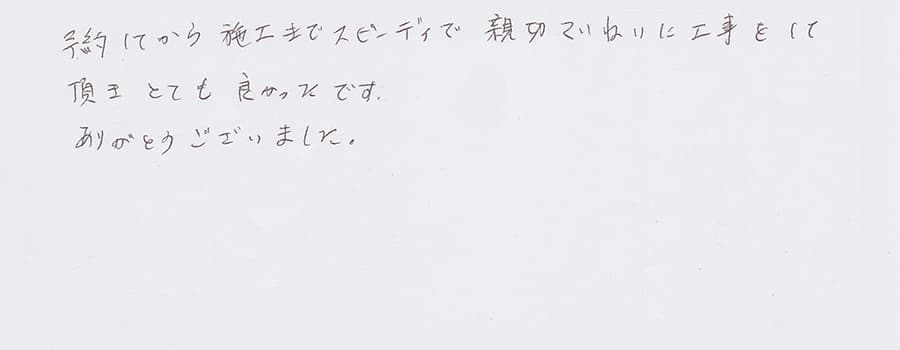 予約してから施工までスピーディで 親切ていねいに工事をして
頂き とても 良かったです.
ありがとうございました。